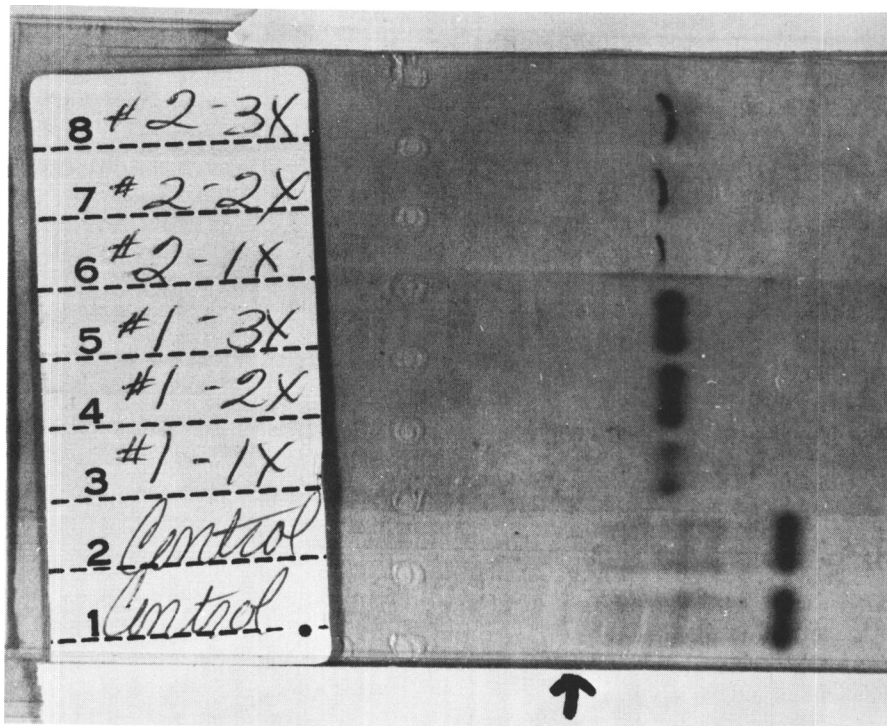 8 # 2 - 3X
7 # 2 - 2X
6 # 2 - 1X
5 # 1 - 3X
4 # 1 - 2X
3 # 1 - 1X
2 Control
1 Control .